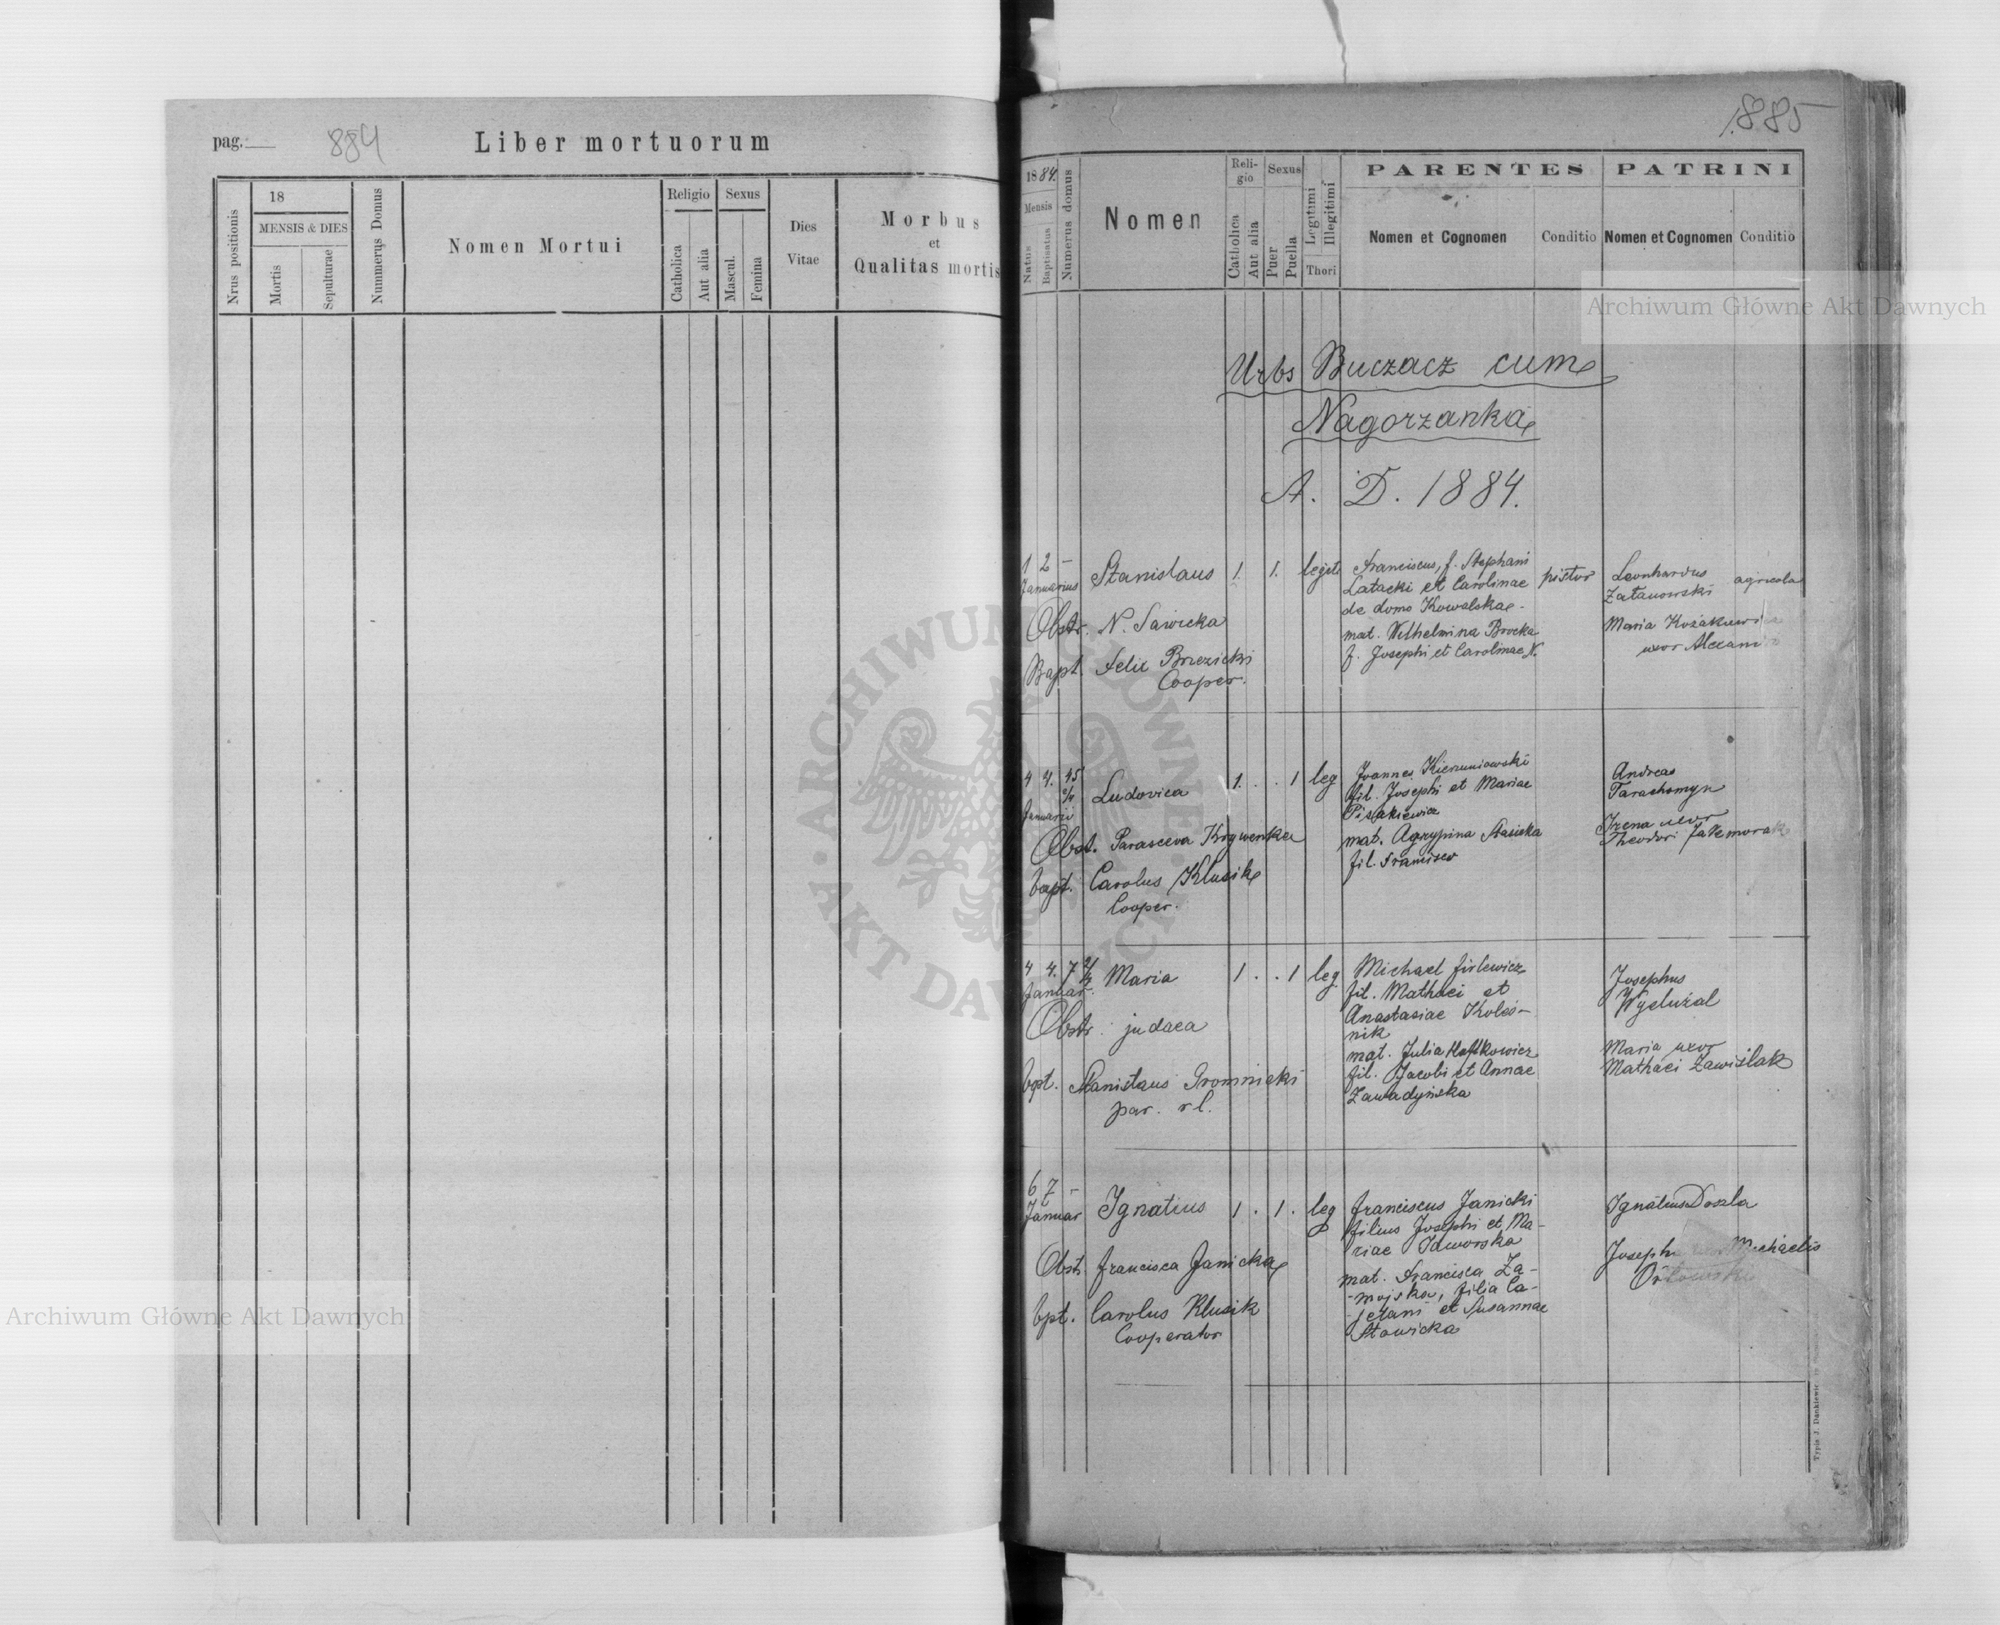 pag.
884
Liber mortuorum
Nrus positionis
18
MENSIS & DIES
Mortis
Sepulturae
Nummerus Domus
Nomen Mortui
Religio
Catholica
Aut alia
Sexus
Mascul.
Femina
Dies
Vitae
Morbus
et
Qualitas mortis
1885
1884.
Mensis
Natus
Baptisatus
Numerus domus
Nomen
Reli-
gio
Catholica
Aut alia
Sexus
Puer
Puella
Legitimi
Illegitimi
Thori
PARENTES
Nomen et Cognomen
Conditio
PATRINI
Nomen et Cognomen
Conditio
Archiwum Główne Akt Dawnych
Urbs Buczacz cum
Nagorzanka
A. D. 1884.
1 2 –
Januarius
Stanislaus 1. 1. legit.
Obstr. N. Sawicka
Bapt. Felix Brzezicki
Cooper.
Franciscus, f. Stephani
Latacki et Carolinae
de domo Kowalska
mat. Wilhelmina Brocka
f. Josephi et Carolinae N.
pistor
Leonhardus
agricola
Maria
uxor
4 4. 45
2/4
Januarii
Ludovica 1. . . 1 leg
Obst. Parasceva Krywenka
bapt. Carolus Klusik
Cooper.
Joannes Kierzuniowski
fil. Josephi et Mariae
Pisakiewicz
mat. Agrypina Stasicka
fil.
Andreas
Tarachomyn
Irena uxor
Theodori
4 4. 7 2/4
Januar.
Maria 1 . . 1 leg.
Obstr. judaea
bpt. Stanislaus Gromnicki
par. r l.
Michael Firlewicz
fil. Mathaei et
Anastasiae Koles-
nik
mat. Julia
fil. Jacobi et Annae
Zawadyńska
Josephus
Wyclużal
Maria uxor
Mathaei Zawiślak
6 7 –
Januar
Ignatius 1 . 1 . leg
Obst. Francisca Janicka
bpt. Carolus Klusik
Cooperator
Franciscus Janicki
filius Josephi et Ma-
riae Jaworska
mat. Francisca Za-
-mojska, filia Ca-
jetani et Susannae
Stawicka
Ignatius Doszla
Joseph Michaelis
Orłowski
Typis J. Dankiewic
ARCHIWUM GŁÓWNE
AKT DAWNYCH
Archiwum Główne Akt Dawnych